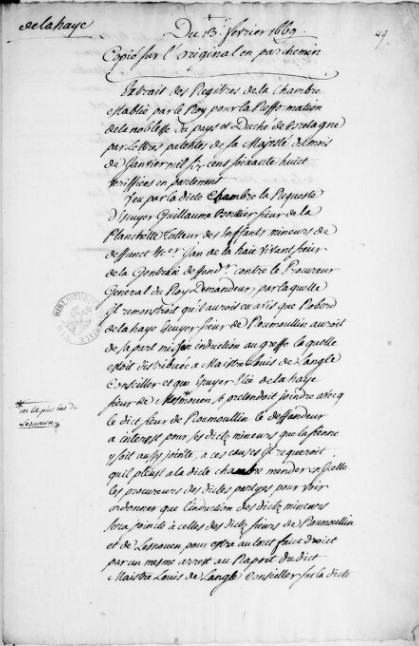 de la haye
Du 13e fevrier 1669
49.
Copié sur l'original en parchemin
Extrait des Registres de la Chambre
establie par le Roy pour la Refformation
de la noblesse du pays et Duché de Bretagne
par Lettres patentes de sa Majesté du mois
de Janvier mil six cens soixante huict
veriffiees en parlement
Veu par la dicte Chambre la Requeste
d'Escuyer Guillaume sieur de la
Planchette Tutteur des Enffants mineurs de
deffunct Jan de la haie vivant sieur
de la deffandr. contre le Procureur
General du Roy Demandeur, par laquelle
Il remonstroit qu'il auroit eu avis que
de la haye Escuyer sieur de Roumoullin auroit
de sa part mis son induction au greffe laquelle
estoit distribuée a Maistre Louis de Langle
Conseiller et que Escuyer de la haye
sieur de pretendoit joindre avecq
le dict sieur de Roumoullin le deffandeur
a interest pour ses dictz mineurs que la sienne
y soit aussy jointe, a ces causes Il requeroit
qu'il pleust a la dicte chambre mender en Icelle
les procureurs des dictes partyes pour voir
ordonner que l'induction des dictz mineurs
sera jointe a celles des dictz sieurs de Roumoullin
et de Lesnouen pour estre au tout faict droict
par un mesme arrest au Raport du dict
Maistre Louis de Langle Conseiller sur la dicte
plus bas de
Lesnouen